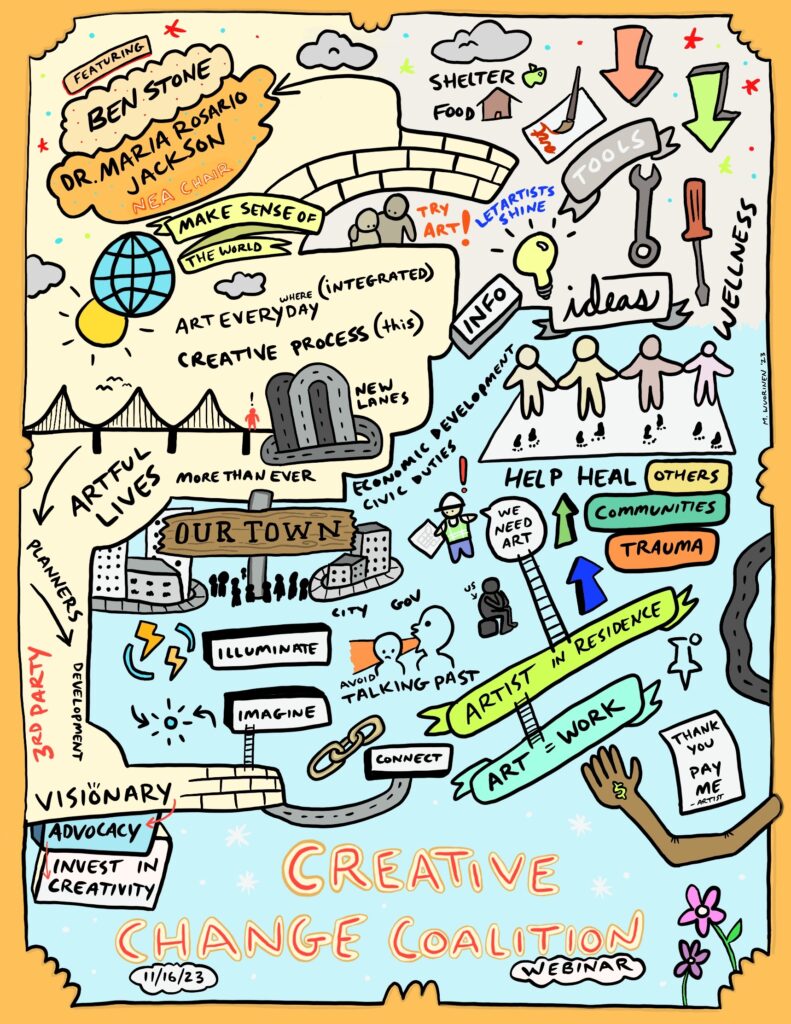 FEATURING
BEN STONE
DR. MARIA ROSARIO
JACKSON
NEA CHAIR
SHELTER
FOOD
TOOLS
MAKE SENSE OF
THE WORLD
TRY
ART!
LET ARTISTS
SHINE
WELLNESS
INFO
ideas
ART EVERYDAY
WHERE
(INTEGRATED)
CREATIVE PROCESS (this)
NEW
LANES
!
M. WUORINEN '23
ECONOMIC DEVELOPMENT
CIVIC DUTIES
ARTFUL
LIVES
MORE THAN EVER
OUR TOWN
HELP HEAL
OTHERS
COMMUNITIES
TRAUMA
!
WE
NEED
ART
PLANNERS
DEVELOPMENT
3RD PARTY
CITY GOV
US
ILLUMINATE
AVOID
TALKING PAST
ARTIST IN RESIDENCE
IMAGINE
CONNECT
ART = WORK
THANK
YOU
PAY
ME
-ARTIST
$
VISIONARY
ADVOCACY
INVEST IN
CREATIVITY
CREATIVE
CHANGE COALITION
11/16/23
WEBINAR